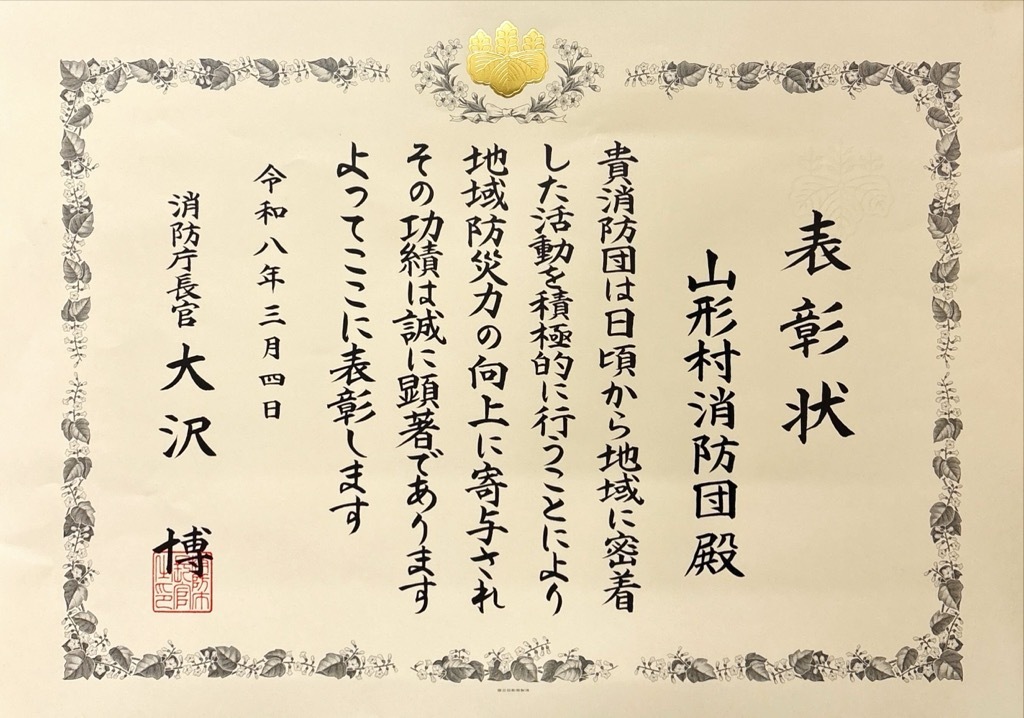 表彰状
山形村消防団殿
貴消防団は日頃から地域に密着
した活動を積極的に行うことにより
地域防災力の向上に寄与され
その功績は誠に顕著であります
よってここに表彰します
令和八年三月四日
消防庁長官 大沢 博